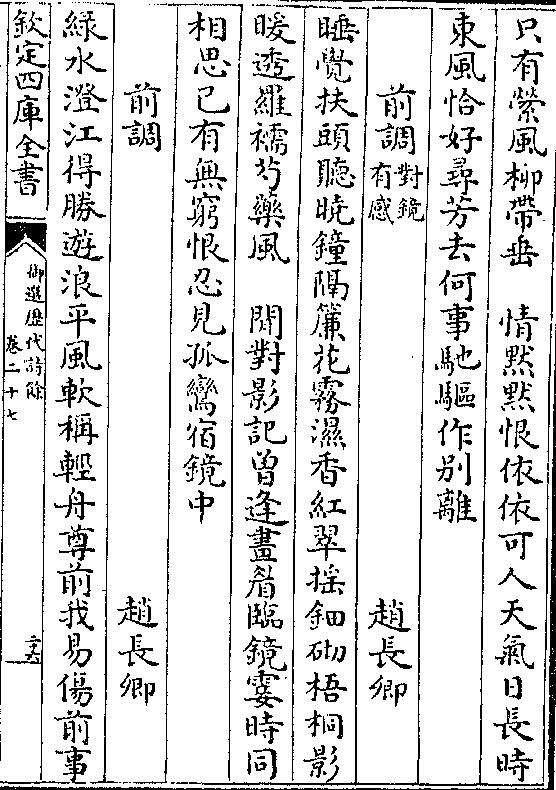 只有縈風柳帶垂　情黙黙恨依依可人天氣日長時
東風恰好尋芳去何事馳驅作别離
前調對鏡有感　趙長卿
睡覺扶頭聽曉鐘隔簾花霧濕香紅翠揺鈿砌梧桐影
暖透羅襦芍藥風　閒對影記曾逢畫眉臨鏡霎時同
相思已有無窮恨忍見孤鸞宿鏡中
前調　趙長卿
緑水澄江得勝遊浪平風軟稱輕舟尊前我易傷前事
欽定四庫全書
御選歴代詩餘
卷二十七
二六